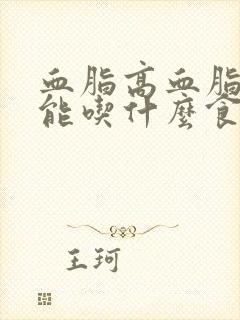 血脂高血脂
能喫什麼食
王珂